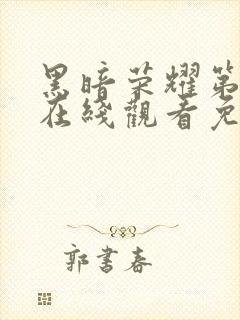 黑暗荣耀第
在綫觀看免
郭書春